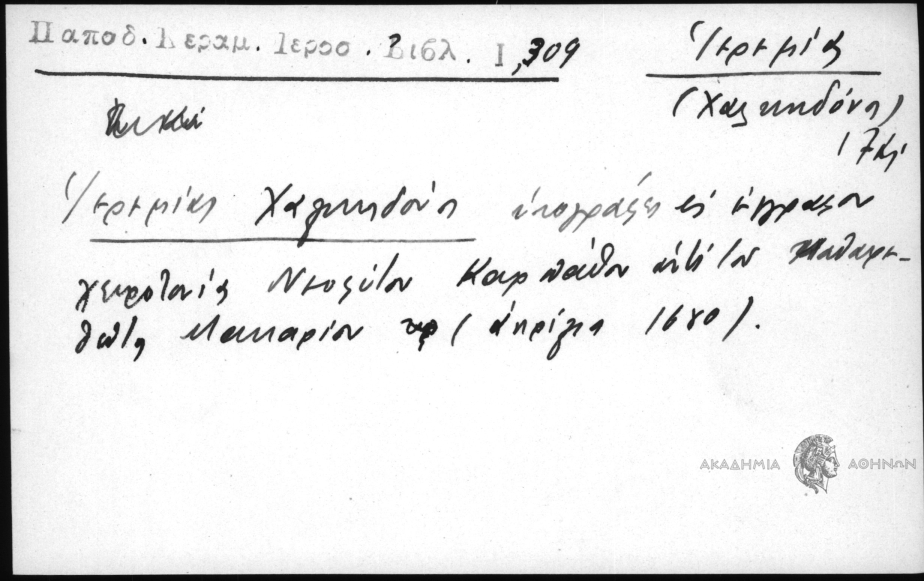 Παπαδ. Κεραμ. Ιεροσ. Βιβλ. I, 309
Ἱερεμίας
(Χαλκηδόνος)
17ος
Ἱερεμίας Χαλκηδόνος ὑπογράφει εἰς ἔγγραφον
χειροτονίας Νεοφύτου Καρπάθου ἀντὶ τοῦ παραιτη-
θέντος Μακαρίου (ἀπρίλιος 1680).
ΑΚΑΔΗΜΙΑ ΑΘΗΝΩΝ